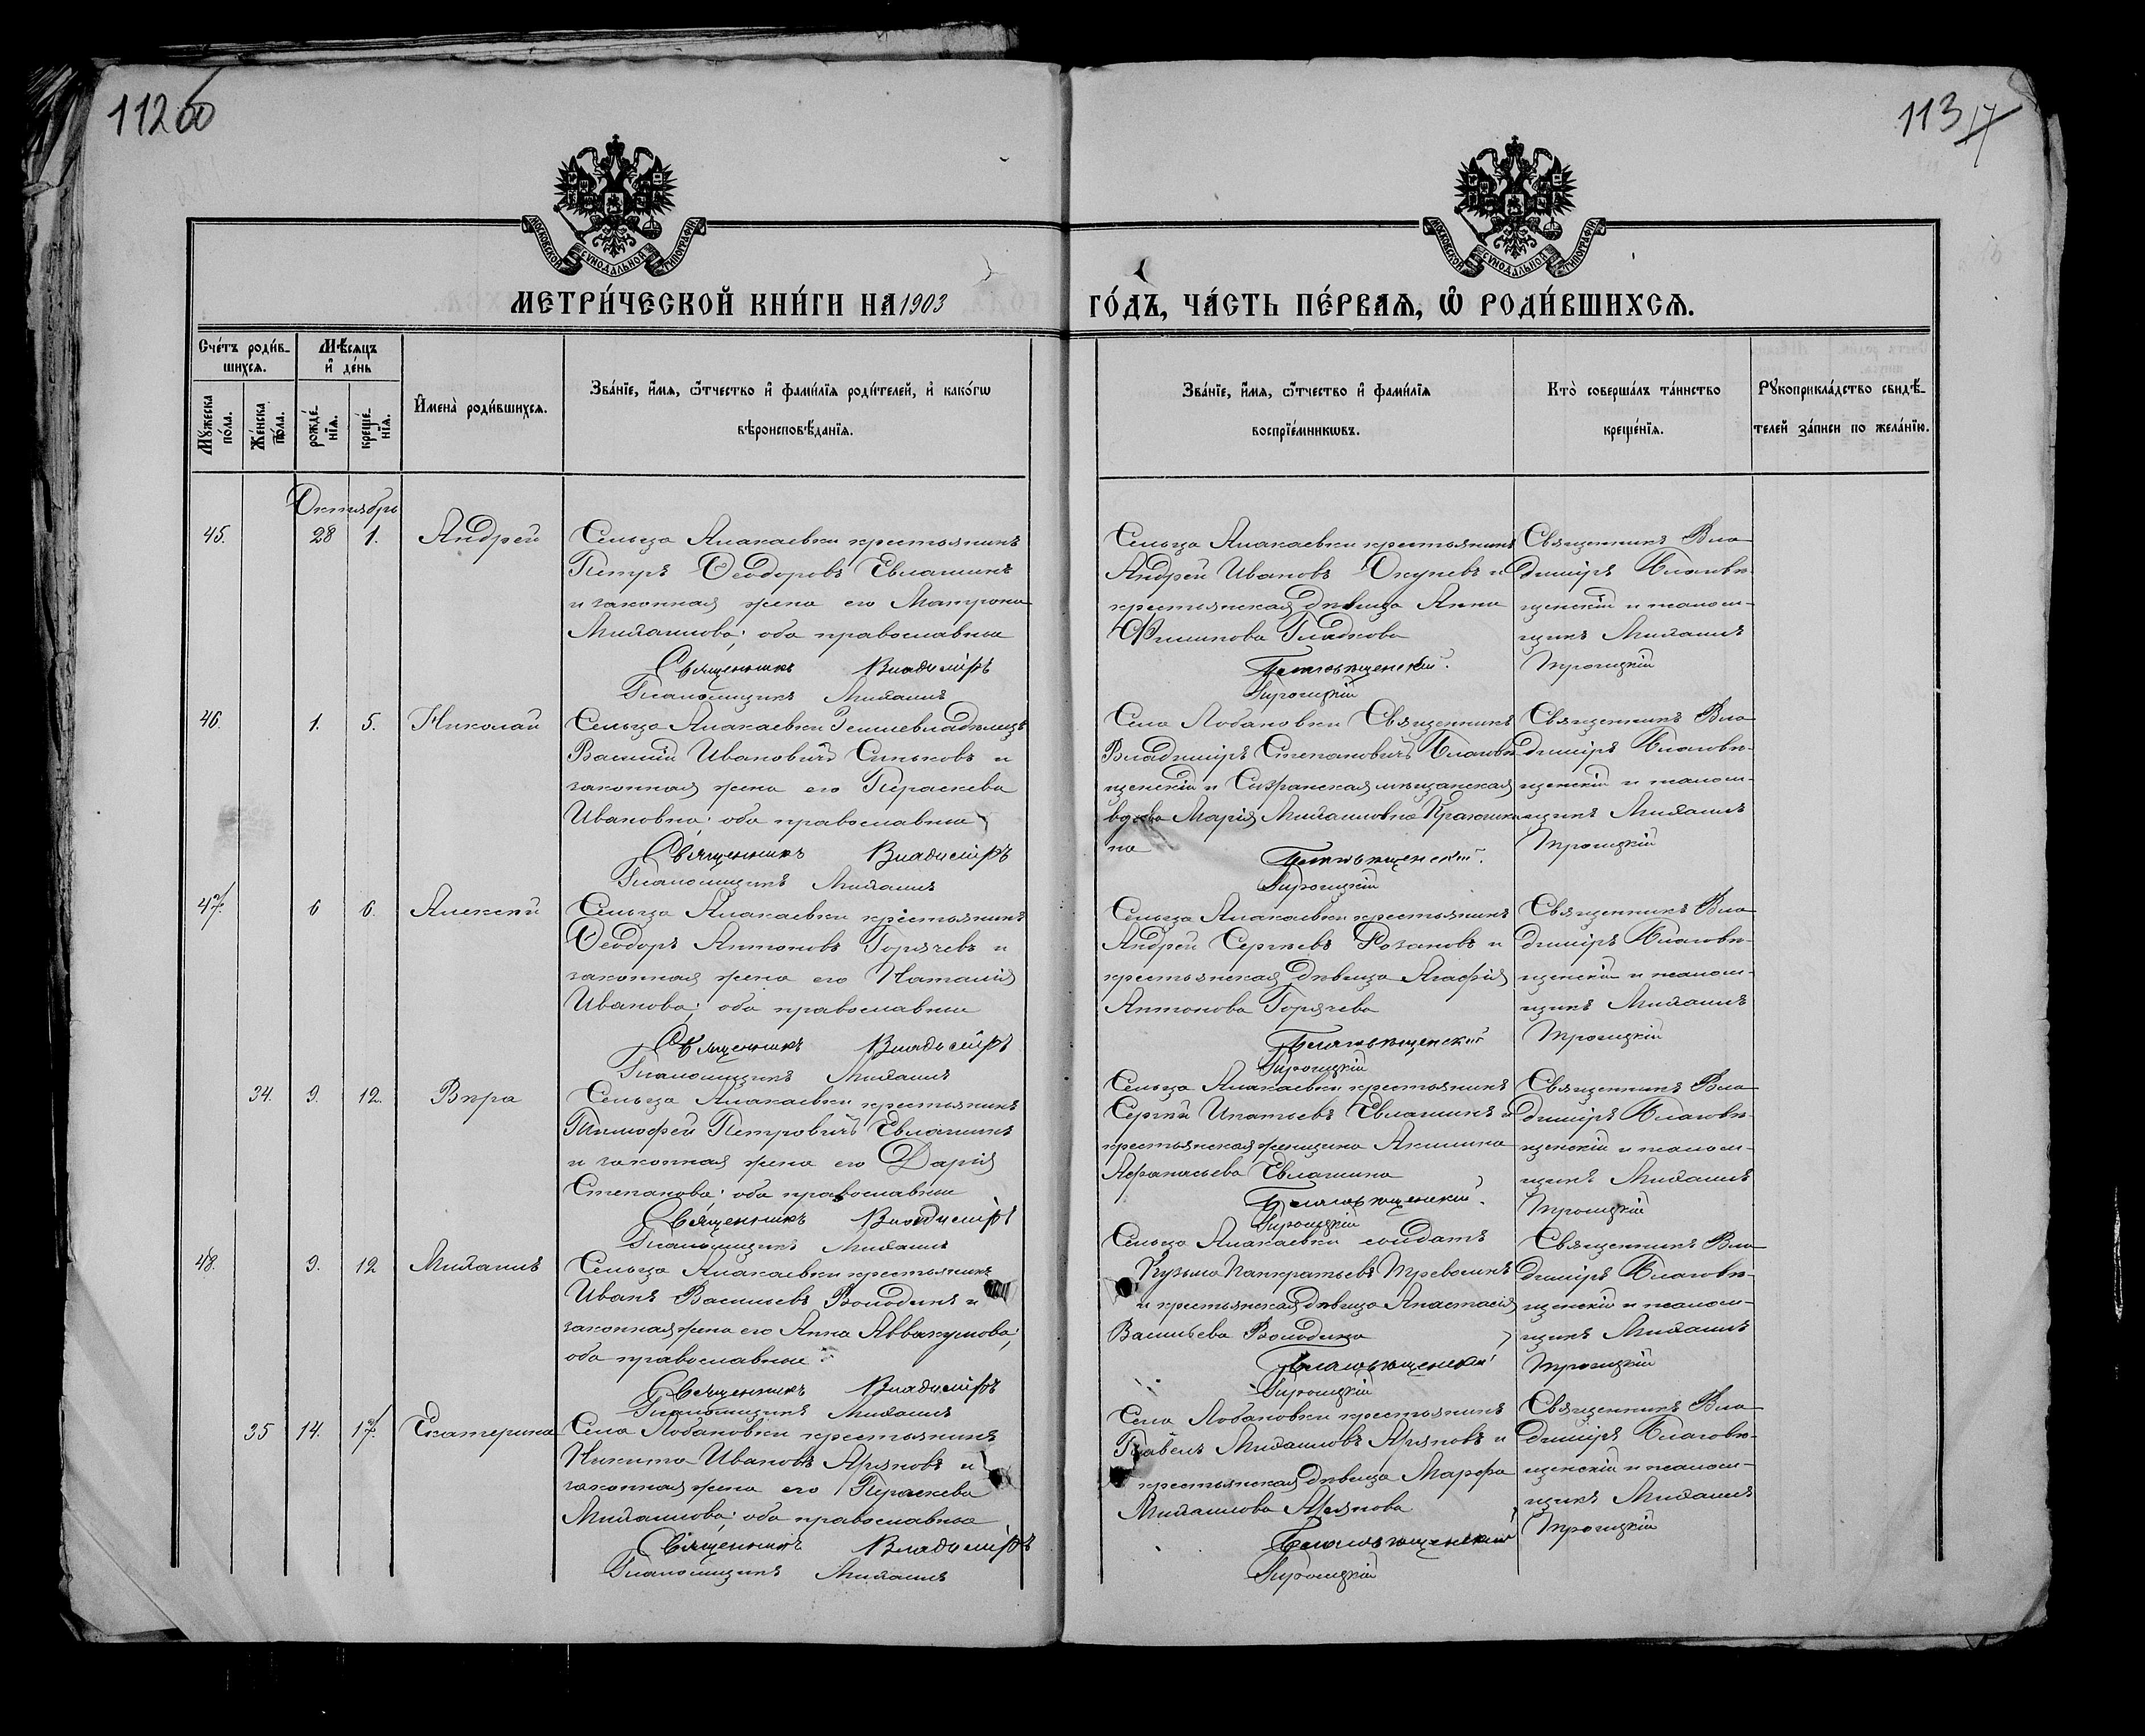 112об
113
17
МОСКОВСКОЙ СѴНОДАЛЬНОЙ ТИПОГРАФІИ
МОСКОВСКОЙ СѴНОДАЛЬНОЙ ТИПОГРАФІИ
МЕТРИ́ЧЕСКОЙ КНИ́ГИ НА 1903 ГО́ДЪ, ЧА́СТЬ ПЕ́РВАѦ, Ѡ҆ РОДИ́ВШИХСѦ.
Сче́тъ роди́в-
шихсѧ.
Мѣ́сѧцъ
и҆ де́нь
Мꙋ́жеска
по́ла.
Же́нска
по́ла.
рожде́-
нїѧ.
креще́-
нїѧ.
И҆мена̀ роди́вшихсѧ.
Зва́нїе, и҆́мѧ, ѻ҆́тчество и҆ фами́лїѧ роди́телей, и҆ како́гѡ
вѣроисповѣ́данїѧ.
Зва́нїе, и҆́мѧ, ѻ҆́тчество и҆ фами́лїѧ
воспрїе́мникѡвъ.
Кто̀ соверша́лъ та́инство
креще́нїѧ.
Рꙋкоприкла́дство свидѣ́-
телей за́писи по жела́нїю.
Октябрь
45. 28 1. Андрей
Сельца Алакаевки крестьянинъ
Петръ Ѳеодоровъ Евлашинъ
и законная жена его Матрона
Михаилова; оба православные
Священникъ Владиміръ
Псаломщикъ Михаилъ
Сельца Алакаевки крестьянинъ
Андрей Ивановъ Окуневъ и
крестьянская дѣвица Анна
Филипова Гладкова
Благовѣщенскій.
Троицкій
Священникъ Вла-
диміръ Благовѣ-
щенскій и псалом-
щикъ Михаилъ
Троицкій
46. 1. 5. Николай
Сельца Алакаевки Землевладѣлецъ
Василій Ивановичъ Синьковъ и
законная жена его Параскева
Ивановна; оба православные
Священникъ Владиміръ
Псаломщикъ Михаилъ
Села Лобановки Священникъ
Владиміръ Степановичъ Благовѣ-
щенскій и Сызранская мѣщанская
вдова Марія Михаиловна
на
Благовѣщенскій.
Троицкій
Священникъ Вла-
диміръ Благовѣ-
щенскій и псалом-
щикъ Михаилъ
Троицкій
47. 6 6. Алексѣй
Сельца Алакаевки крестьянинъ
Ѳеодоръ Антоновъ Горячевъ и
законная жена его Наталія
Иванова; оба православные
Священникъ Владиміръ
Псаломщикъ Михаилъ
Сельца Алакаевки крестьянинъ
Андрей Сергѣевъ Розановъ и
крестьянская дѣвица Агафія
Антонова Горячева
Благовѣщенскій
Троицкій
Священникъ Вла-
диміръ Благовѣ-
щенскій и псалом-
щикъ Михаилъ
Троицкій
34. 9. 12. Вѣра
Сельца Алакаевки крестьянинъ
Тимофей Петровичъ Евлашинъ
и законная жена его Дарія
Степанова; оба православные
Священникъ Владиміръ
Псаломщикъ Михаилъ
Сельца Алакаевки крестьянинъ
Сергѣй Игнатьевъ Евлашинъ и
крестьянская женщина Акилина
Афанасьева Евлашина
Благовѣщенскій.
Троицкій
Священникъ Вла-
диміръ Благовѣ-
щенскій и псалом-
щикъ Михаилъ
Троицкій
48. 9. 12 Михаилъ
Сельца Алакаевки крестьянинъ
Иванъ Васильевъ Володинъ и
законная жена его Анна Аввакумова;
оба православные
Священникъ Владиміръ
Псаломщикъ Михаилъ
Сельца Алакаевки солдатъ
Кузьма Панкратьевъ
и крестьянская дѣвица Анастасія
Васильева Володина
Благовѣщенскій
Троицкій
Священникъ Вла-
диміръ Благовѣ-
щенскій и псалом-
щикъ Михаилъ
Троицкій
35 14. 17. Екатерина
Села Лобановки крестьянинъ
Никита Ивановъ и
законная жена его Параскева
Михаилова; оба православные
Священникъ Владиміръ
Псаломщикъ Михаилъ
Села Лобановки крестьянинъ
Павелъ Михаиловъ и
крестьянская дѣвица Марфа
Михаилова
Благовѣщенскій
Троицкій
Священникъ Вла-
диміръ Благовѣ-
щенскій и псалом-
щикъ Михаилъ
Троицкій